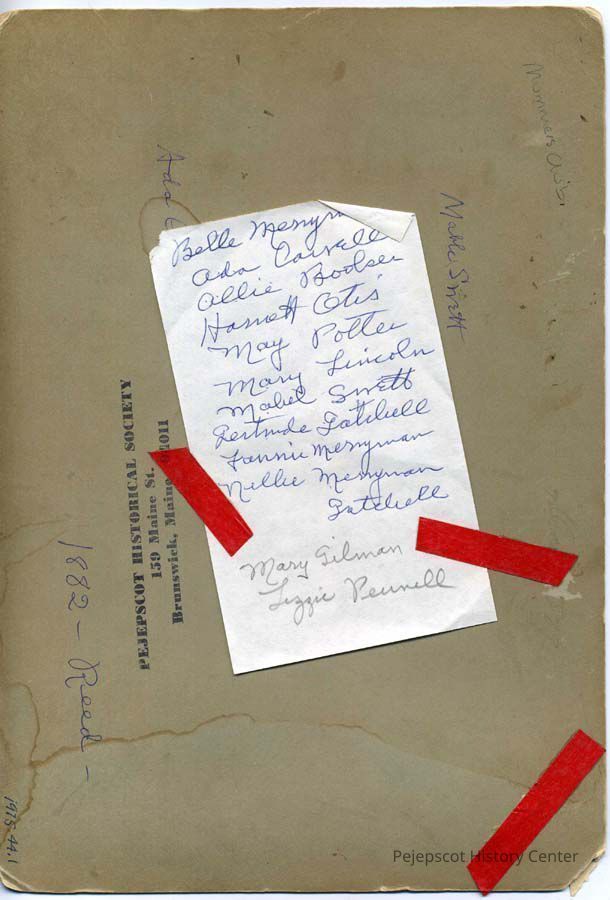 Mummers Club
Ada
Mable Swett
Belle Merrym
Ada Carvell
Allie Booker
Harriett Otis
May Potter
Mary Lincoln
Mabel Swett
Gertrude Gatchell
Fannie Merryman
Nellie Merryman
Gatchell
Mary Gilman
Lizzie Pennell
PEJEPSCOT HISTORICAL SOCIETY
159 Maine St.
Brunswick, Maine 2011
1882 - Reed -
1975.44.1
Pejepscot History Center